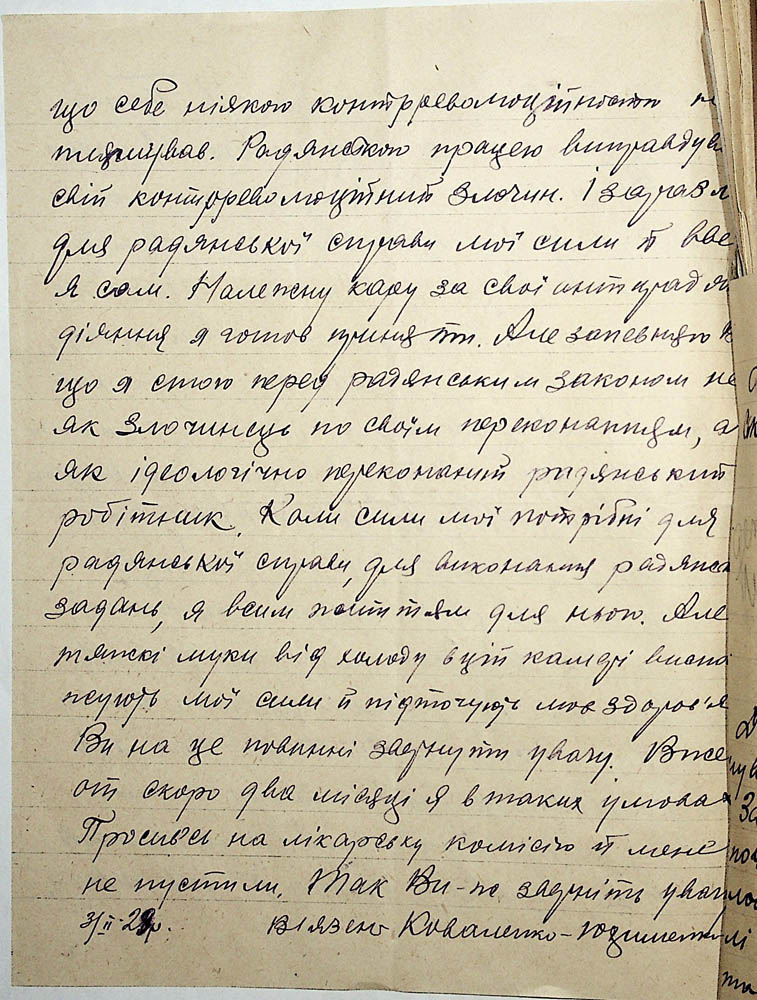 що себе ніякою контрреволюційністю не
плямував. Радянською працею виправдував
свій контрреволюційний злочин. І зараз я
для радянської справи мої сили й вве
я сам. Належну кару за свої антирадян
діяння я готов приняти. Але запевняю В
що я стою перед радянським законом не
як злочинець по своїм переконанням, а
як ідеологічно переконаний радянський
робітник. Коли сили мої потрібні для
радянської справи, для виконання радянськ
задань, я всим життям для нього. Але
тяжкі муки від холоду в цій камері висна
жують мої сили й підточують моє здоров'я
Ви на це повинні звернути увагу. Вже
от скоро два місяці я в таких умовах
Просився на лікарську комісію й мене
не пустили. Так Ви-ж зверніть увагу
3/II-29р. Вязень Коваленко-Юзименко